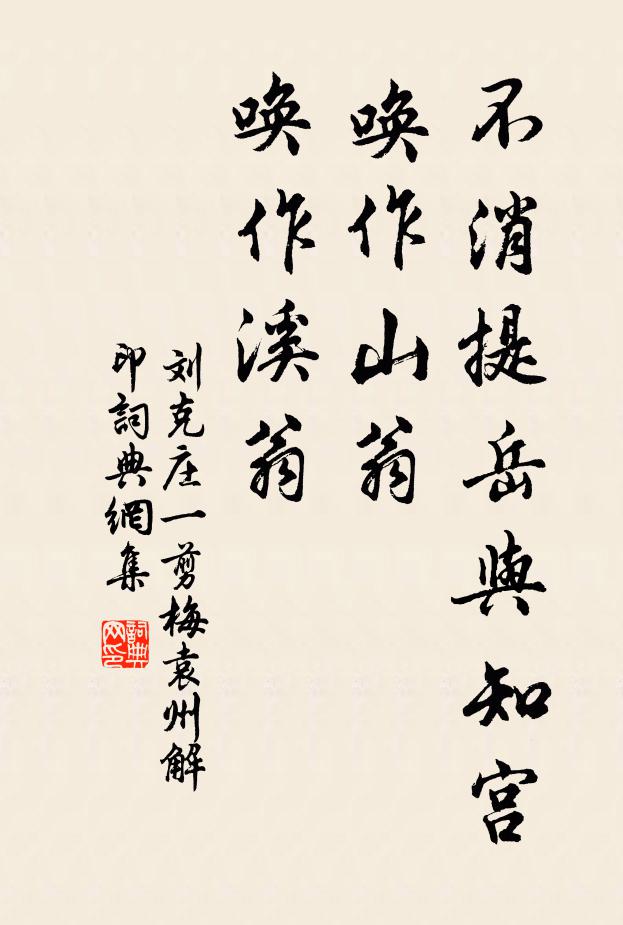 不消提岳與知宫
唤作山翁
唤作溪翁
刘克庄一剪梅袁州解
印詞典網集
詞典
网印